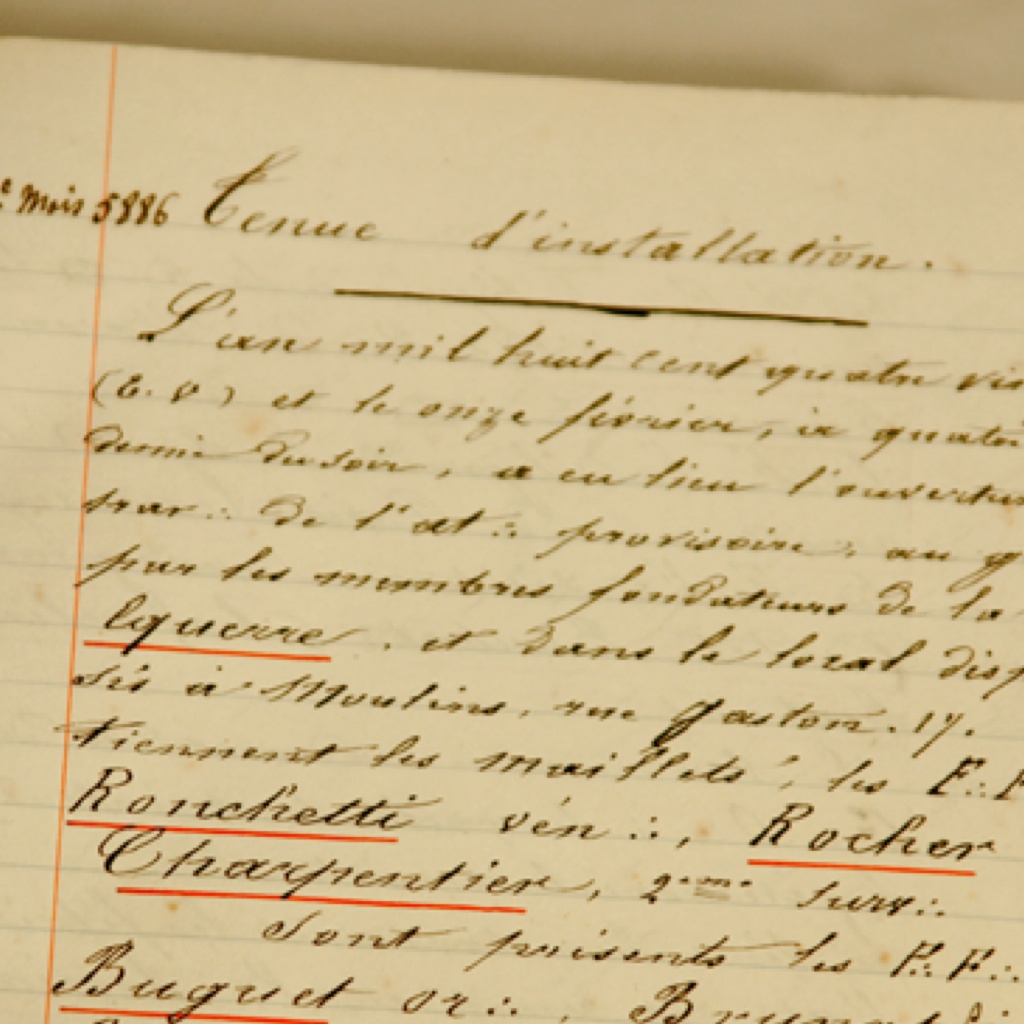 e Mois 5886 Tenue d'installation.
L'an mil huit cent quatre vin
(E. V) et le onze février, à quatre
demie du soir, a eu lieu l'ouvertur
trav∴ de l'at∴ provisoire, au g
par les membres fondateurs de la
Equerre. et dans le local disp
sis à Moulins, rue Gaston. 17.
Tiennent les maillets, les F∴ F
Ronchetti vén∴, Rocher
Charpentier, 2eme surv∴
Sont présents les F∴ F∴
Buguet or∴,